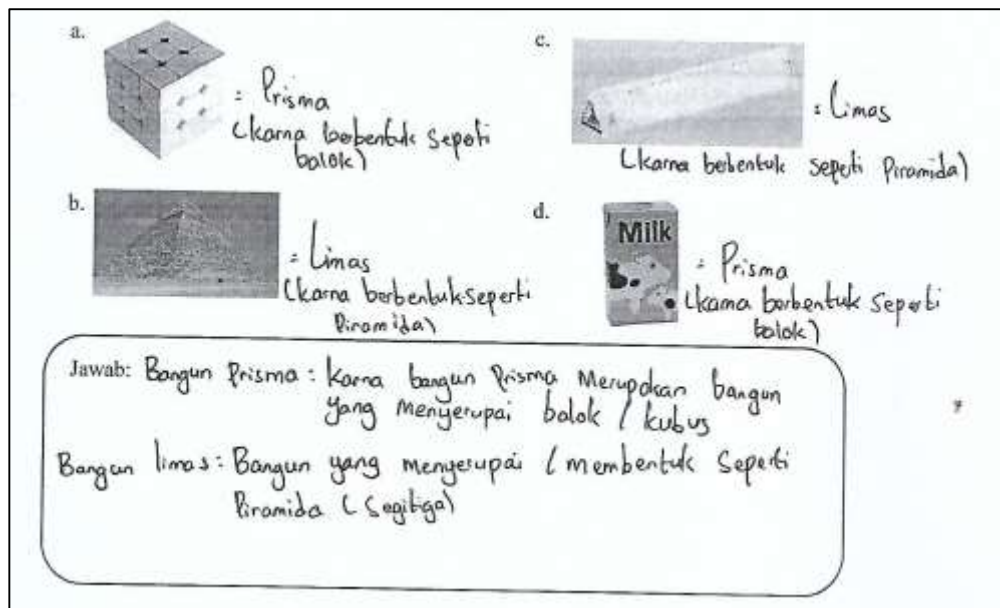 a.
= Prisma
(karna berbentuk seperti
balok)
c.
= Limas
(karna berbentuk seperti Piramida)
b.
= Limas
(karna berbentuk seperti
Piramida)
d.
Milk
= Prisma
(karna berbentuk seperti
balok)
Jawab: Bangun Prisma : Karna bangun Prisma Merupakan bangun
yang menyerupai balok / kubus
Bangun limas : Bangun yang menyerupai / membentuk Seperti
Piramida (Segitiga)